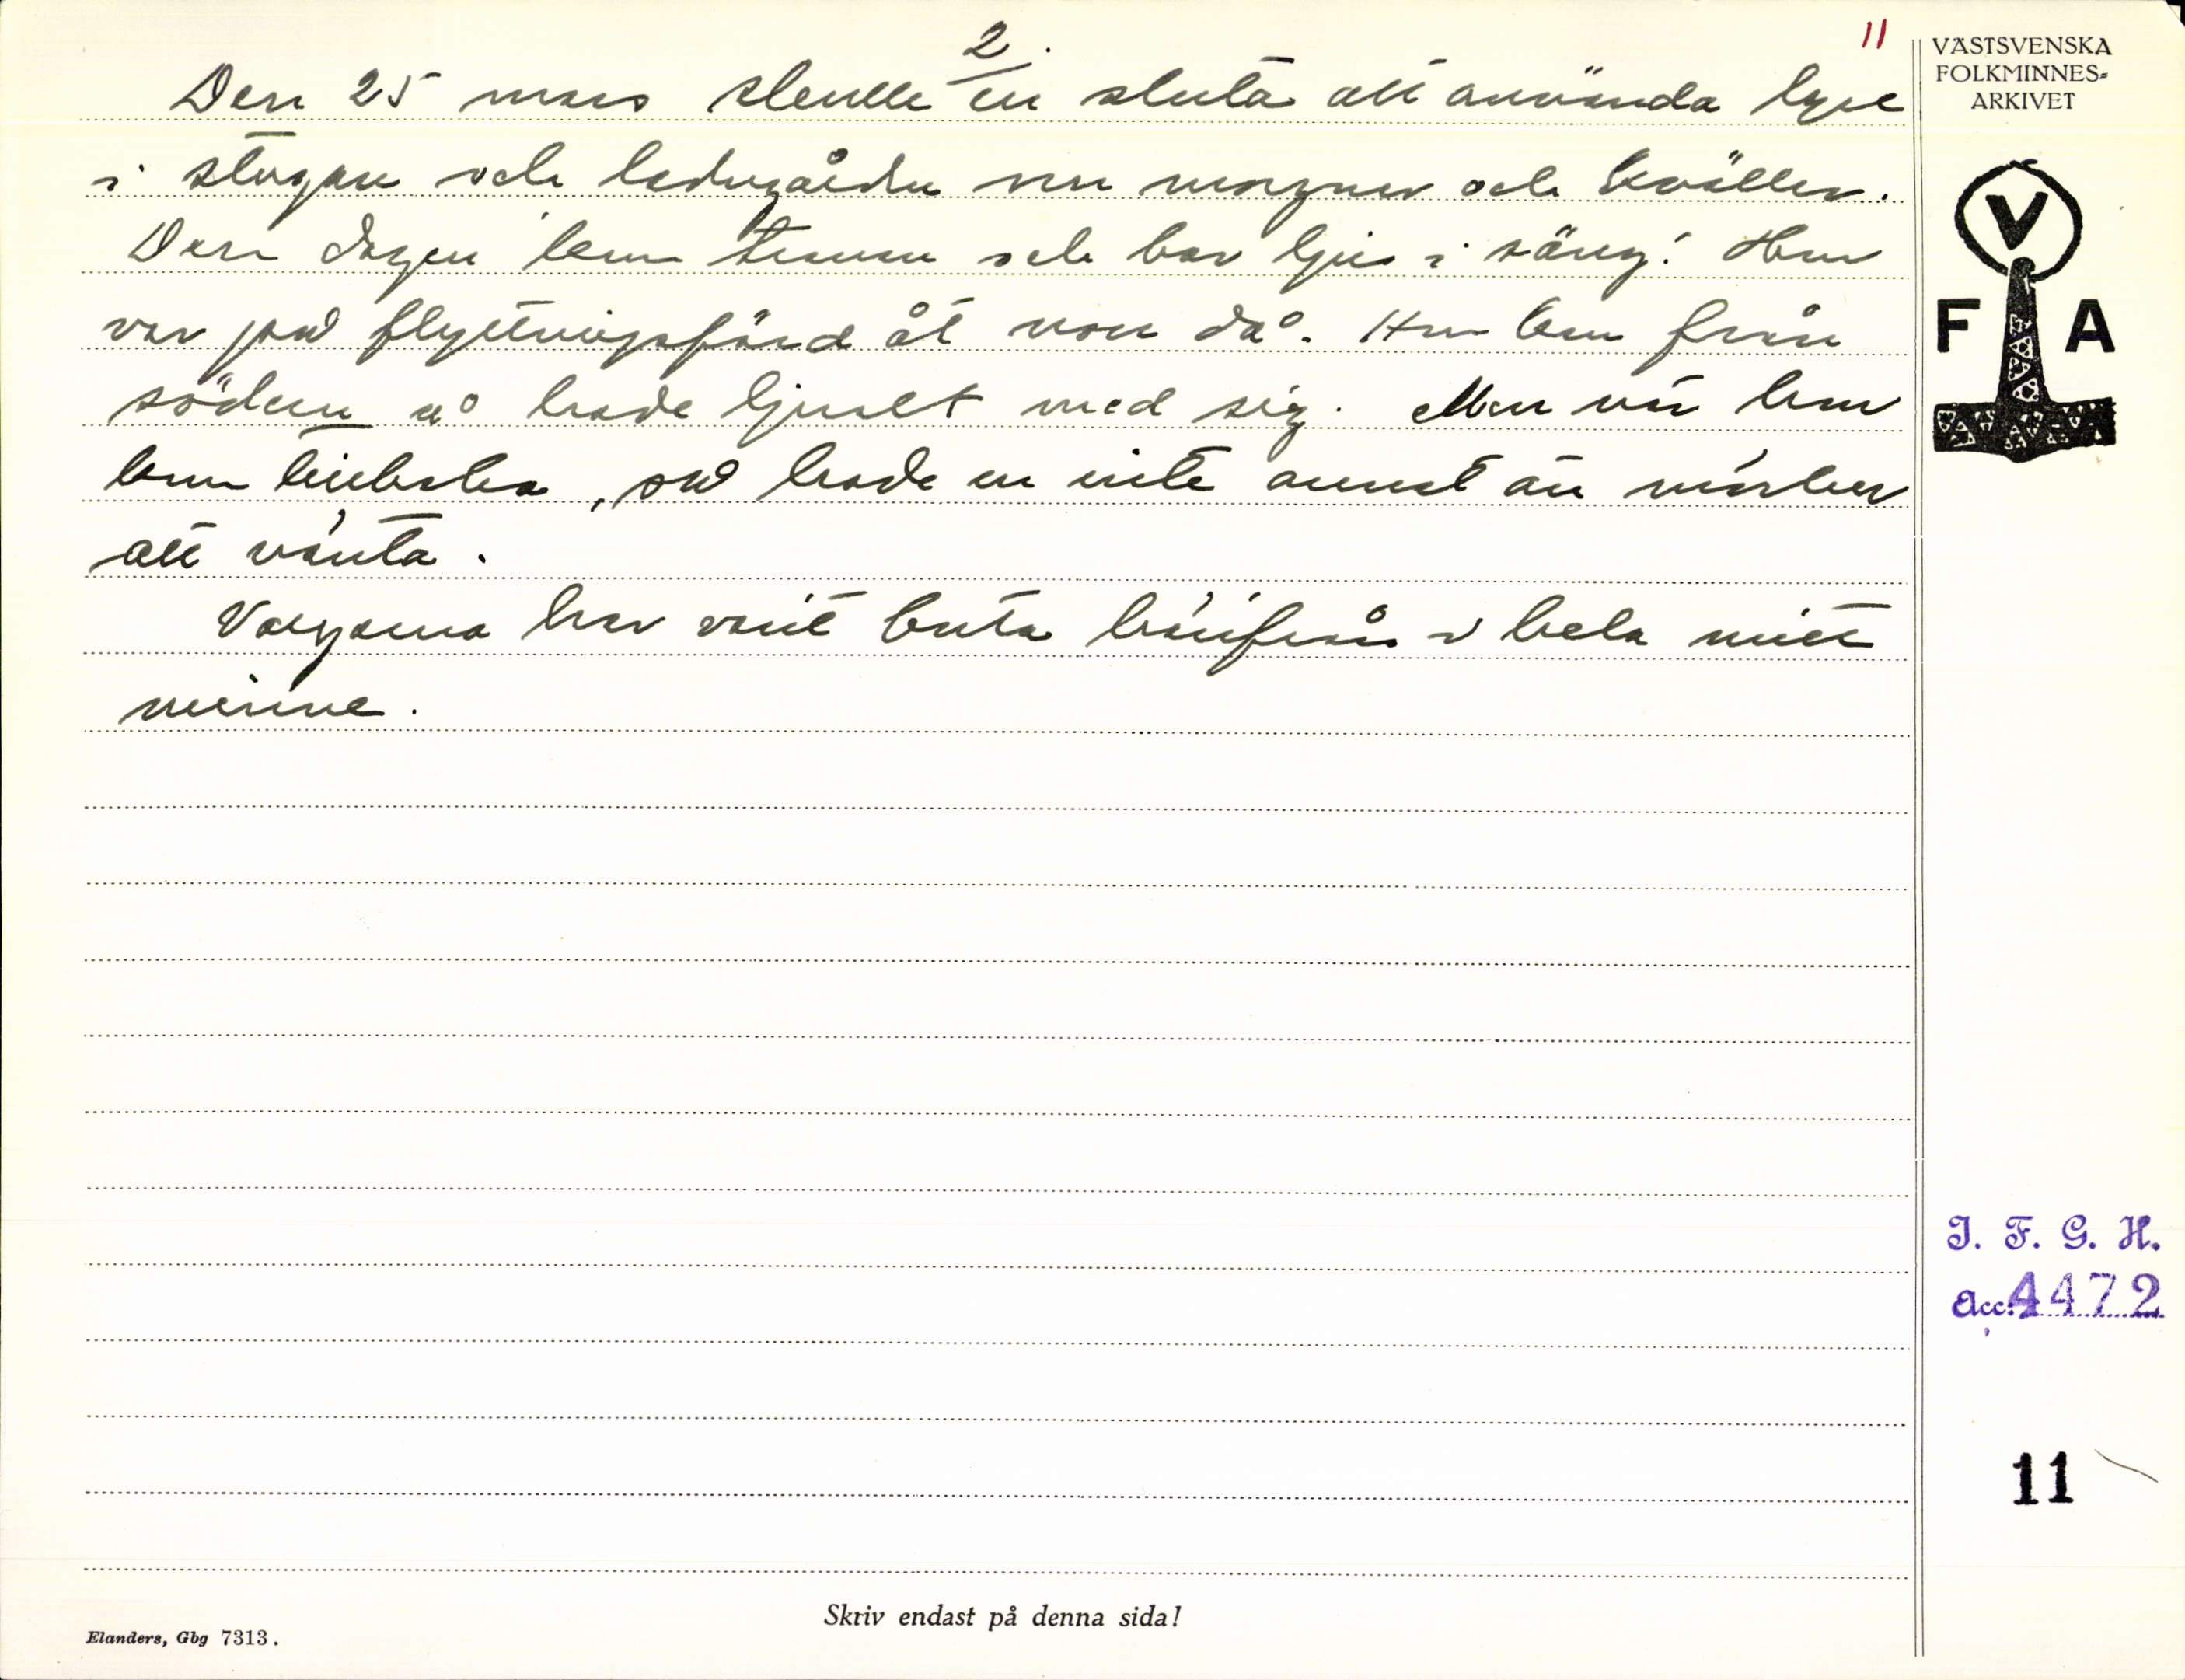 2.
11
Den 25 mars skulle en sluta att använda lyse
i stugan och ladugåden om morgnar och kvällar.
Den dagen kom tranan och bar ljus i säng! Hon
var på flyttningsfärd åt norr då. Hon kom från
södern å hade ljuset med sig. Men när han
kom tillbaka, så hade en inte annat än mörker
att vänta.
Vargarna har varit borta härifrån i hela mitt
minne.
VÄSTSVENSKA
FOLKMINNES-
ARKIVET
V
F A
I. F. G. H.
Acc. 4472
11
Skriv endast på denna sida!
Elanders, Gbg 7313.